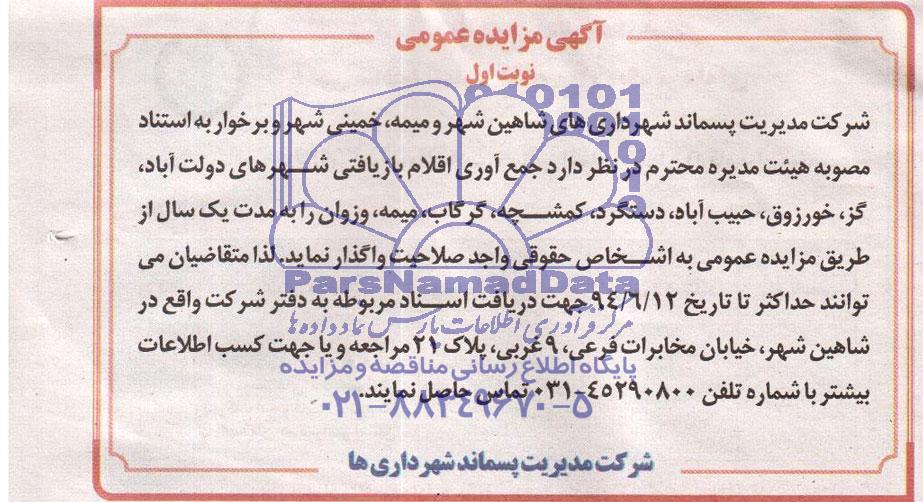 آگهی مزایده عمومی
نوبت اول
شرکت مدیریت پسماند شهرداری های شاهین شهر و میمه، خمینی شهر و برخوار به استناد
مصوبه هیئت مدیره محترم در نظر دارد جمع آوری اقلام بازیافتی شهرهای دولت آباد،
گز، خورزوق، حبیب آباد، دستگرد، کمشچه، گرگاب، میمه، وزوان را به مدت یک سال از
طریق مزایده عمومی به اشخاص حقوقی واجد صلاحیت واگذار نماید. لذا متقاضیان می
توانند حداکثر تا تاریخ ۹۴/۶/۱۲ جهت دریافت اسناد مربوطه به دفتر شرکت واقع در
شاهین شهر، خیابان مخابرات فرعی، ۹ غربی، پلاک ۲۱ مراجعه و یا جهت کسب اطلاعات
بیشتر با شماره تلفن ۴۵۲۹۰۸۰۰-۰۳۱ تماس حاصل نمایند.
شرکت مدیریت پسماند شهرداری ها
ParsNamadData
مرکز فرآوری اطلاعات پارس نماد داده ها
پایگاه اطلاع رسانی مناقصه و مزایده
۰۲۱-۸۸۳۴۹۶۷۰-۵